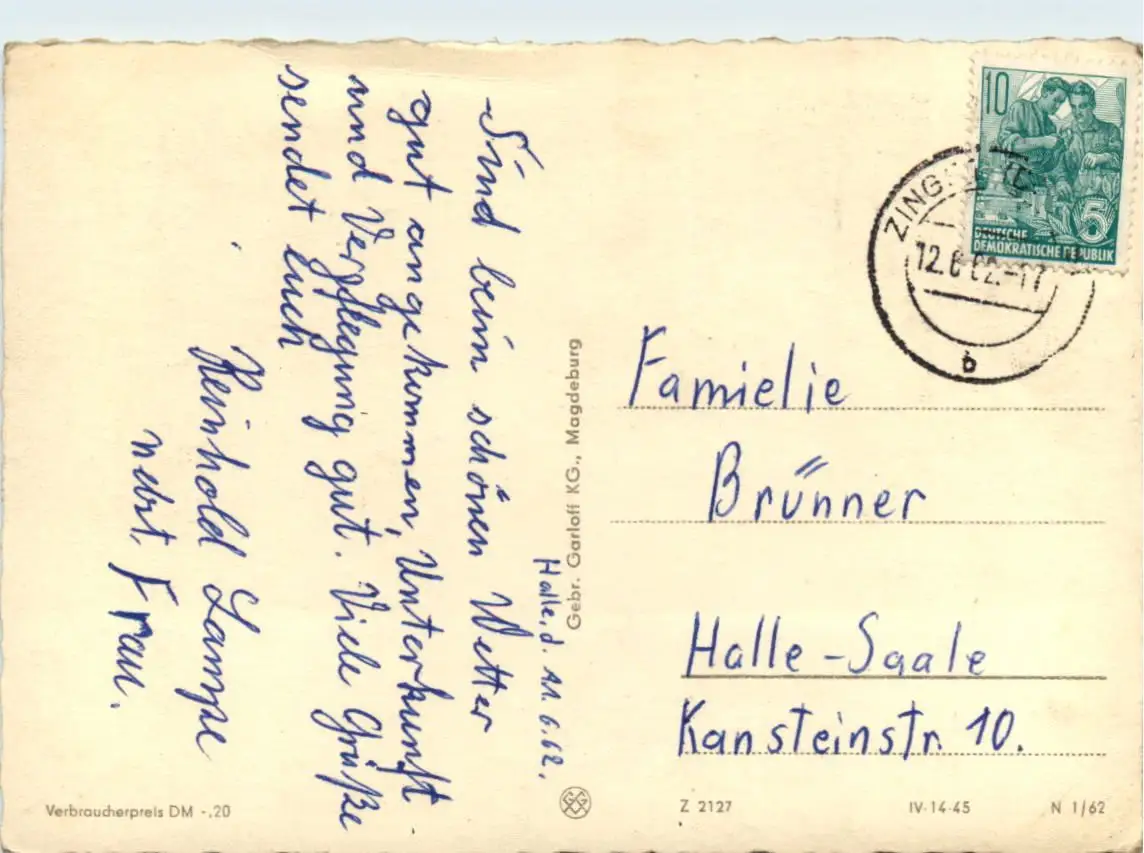 Halle, d. 11.6.62.
Sind beim schönen Wetter
gut angekummen, Unterkunft
und Verpflegung gut. Viele Grüße
sendet Euch
Reinhold Lampe
nebst Frau.
Gebr. Garloff KG., Magdeburg
10
5
DEUTSCHE
DEMOKRATISCHE REPUBLIK
12.6.62.-17
b
Famielie
Brünner
Halle-Saale
Kansteinstr. 10.
Verbraucherpreis DM -,20
Z 2127
IV-14-45
N 1/62